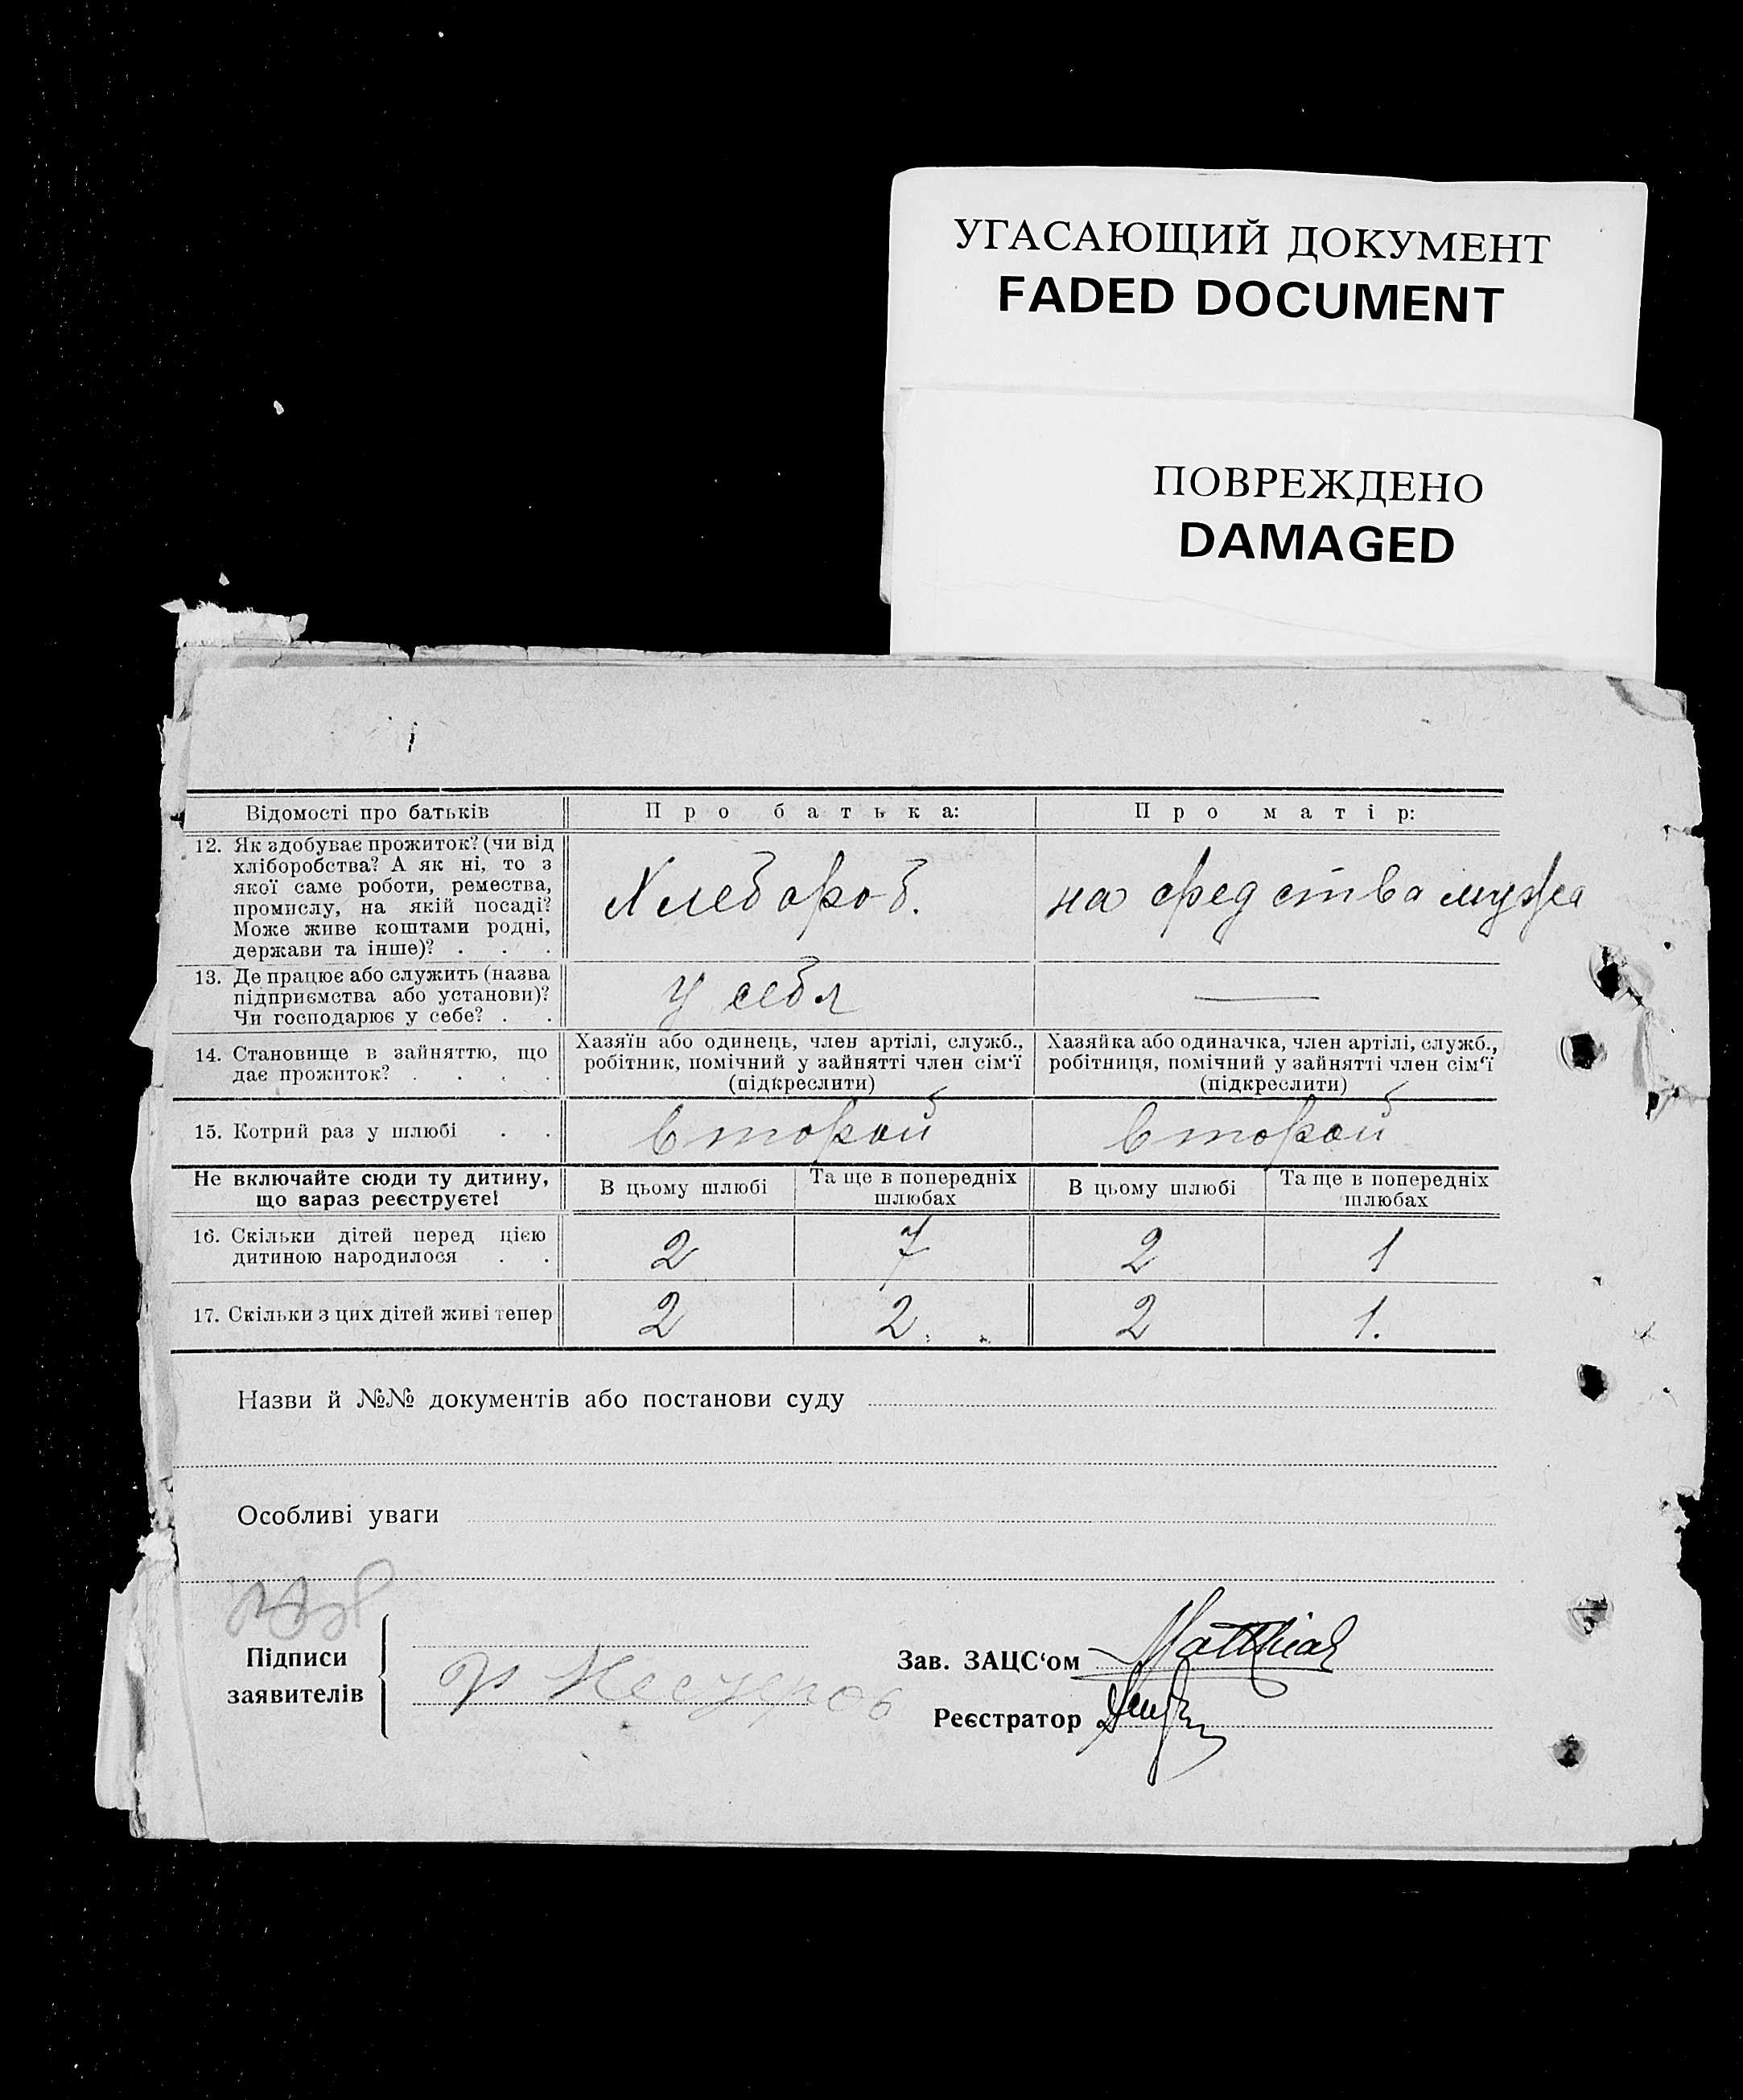 УГАСАЮЩИЙ ДОКУМЕНТ
FADED DOCUMENT
ПОВРЕЖДЕНО
DAMAGED
Відомості про батьків
Про батька:
Про матір:
12. Як здобуває прожиток? (чи від
хліборобства? А як ні, то з
якої саме роботи, ремества,
промислу, на якій посаді?
Може живе коштами родні,
держави та інше)? . . .
Хлебороб.
на средства мужа
13. Де працює або служить (назва
підприємства або установи)?
Чи господарює у себе? . .
у себя
—
14. Становище в зайняттю, що
дає прожиток? . . . .
Хазяїн або одинець, член артілі, служб.,
робітник, помічний у зайнятті член сім‘ї
(підкреслити)
Хазяйка або одиначка, член артілі, служб.,
робітниця, помічний у зайнятті член сім‘ї
(підкреслити)
15. Котрий раз у шлюбі . .
второй
второй
Не включайте сюди ту дитину,
що вараз реєструєте!
В цьому шлюбі
Та ще в попередніх
шлюбах
В цьому шлюбі
Та ще в попередніх
шлюбах
16. Скільки дітей перед цією
дитиною народилося . .
2
7
2
1
17. Скільки з цих дітей живі тепер
2
2.
2
1.
Назви й №№ документів або постанови суду
Особливі уваги
Підписи
заявителів
Зав. ЗАЦС‘ом
Реєстратор